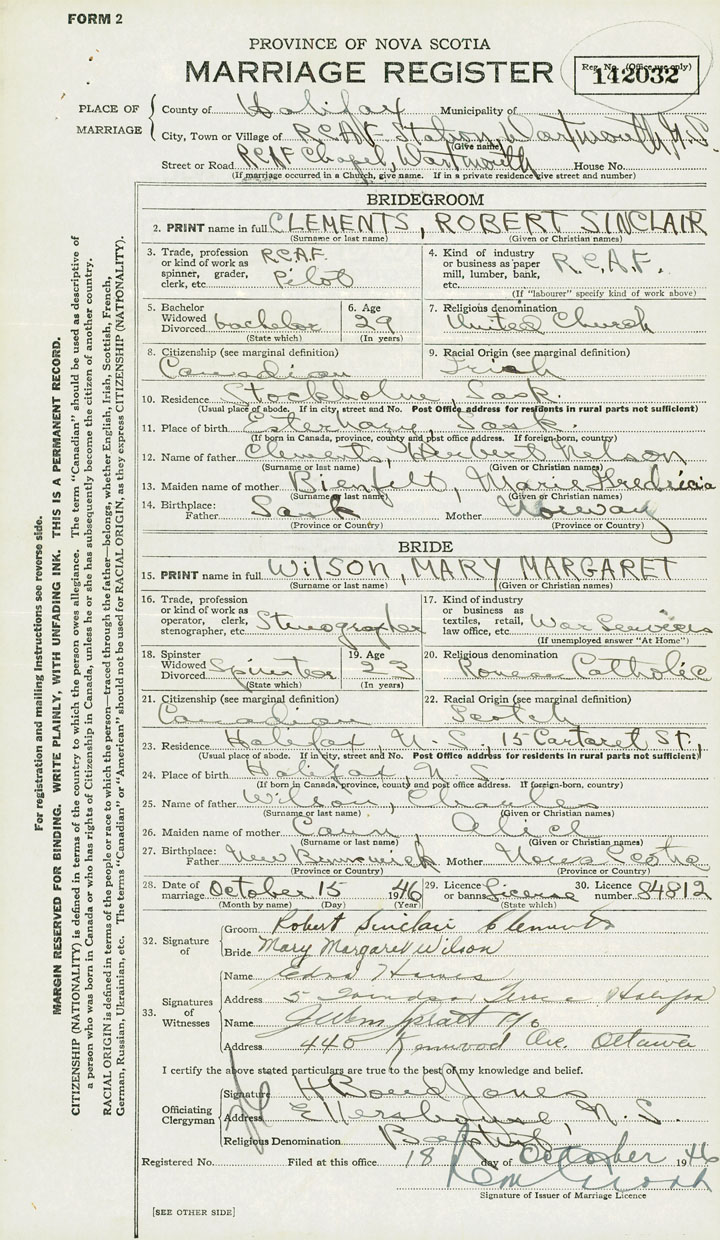 FORM 2
PROVINCE OF NOVA SCOTIA
MARRIAGE REGISTER
Reg. No. (Office use only)
142032
PLACE OF MARRIAGE
County of Halifax Municipality of
City, Town or Village of R.C.A.F. Station, Dartmouth, N.S.
(Give name)
Street or Road RCAF Chapel, Dartmouth House No.
(If marriage occurred in a Church, give name. If in a private residence give street and number)
BRIDEGROOM
2. PRINT name in full CLEMENTS, ROBERT SINCLAIR
(Surname or last name) (Given or Christian names)
3. Trade, profession or kind of work as spinner, grader, clerk, etc. R.C.A.F. Pilot
4. Kind of industry or business as paper mill, lumber, bank, etc. R.C.A.F.
(If "labourer" specify kind of work above)
5. Bachelor Widowed Divorced bachelor
(State which)
6. Age 29
(In years)
7. Religious denomination United Church
8. Citizenship (see marginal definition) Canadian
9. Racial Origin (see marginal definition) Irish
10. Residence Stockholm, Sask.
(Usual place of abode. If in city, street and No. Post Office address for residents in rural parts not sufficient)
11. Place of birth Esterhazy, Sask.
(If born in Canada, province, county and post office address. If foreign-born, country)
12. Name of father Clements, Herbert Nelson
(Surname or last name) (Given or Christian names)
13. Maiden name of mother Bienfelt, Marie Fredricia
(Surname or last name) (Given or Christian names)
14. Birthplace: Father Sask Mother Norway
(Province or Country) (Province or Country)
BRIDE
15. PRINT name in full WILSON, MARY MARGARET
(Surname or last name) (Given or Christian names)
16. Trade, profession or kind of work as operator, clerk, stenographer, etc. Stenographer
17. Kind of industry or business as textiles, retail, law office, etc. War Services
(If unemployed answer "At Home")
18. Spinster Widowed Divorced Spinster
(State which)
19. Age 23
(In years)
20. Religious denomination Roman Catholic
21. Citizenship (see marginal definition) Canadian
22. Racial Origin (see marginal definition) Scotch
23. Residence Halifax, N.S., 15 Cartaret St.,
(Usual place of abode. If in city, street and No. Post Office address for residents in rural parts not sufficient)
24. Place of birth Halifax, N.S.
(If born in Canada, province, county and post office address. If foreign-born, country)
25. Name of father Wilson, Charles
(Surname or last name) (Given or Christian names)
26. Maiden name of mother Cann, Alice
(Surname or last name) (Given or Christian names)
27. Birthplace: Father New Brunswick Mother Nova Scotia
(Province or Country) (Province or Country)
28. Date of marriage October 15 1946
(Month by name) (Day) (Year)
29. Licence or banns License
(State which)
30. Licence number 84812
32. Signature of
Groom Robert Sinclair Clements
Bride Mary Margaret Wilson
33. Signatures of Witnesses
Name Edna
Address 5 Windsor Halifax
Name Pratt F/O
Address 440 Kenwood Ave. Ottawa
I certify the above stated particulars are true to the best of my knowledge and belief.
Officiating Clergyman
Signature H Bond Jones
Address Ellershouse, N.S.
Religious Denomination Baptist
Registered No. Filed at this office 18 day of October 1946
Signature of Issuer of Marriage Licence
[SEE OTHER SIDE]
For registration and mailing instructions see reverse side.
MARGIN RESERVED FOR BINDING. WRITE PLAINLY, WITH UNFADING INK. THIS IS A PERMANENT RECORD.
CITIZENSHIP (NATIONALITY) is defined in terms of the country to which the person owes allegiance. The term "Canadian" should be used as descriptive of
a person who was born in Canada or who has rights of Citizenship in Canada, unless he or she has subsequently become the citizen of another country.
RACIAL ORIGIN is defined in terms of the people or race to which the person—traced through the father—belongs, whether English, Irish, Scottish, French,
German, Russian, Ukrainian, etc. The terms "Canadian" or "American" should not be used for RACIAL ORIGIN, as they express CITIZENSHIP (NATIONALITY).